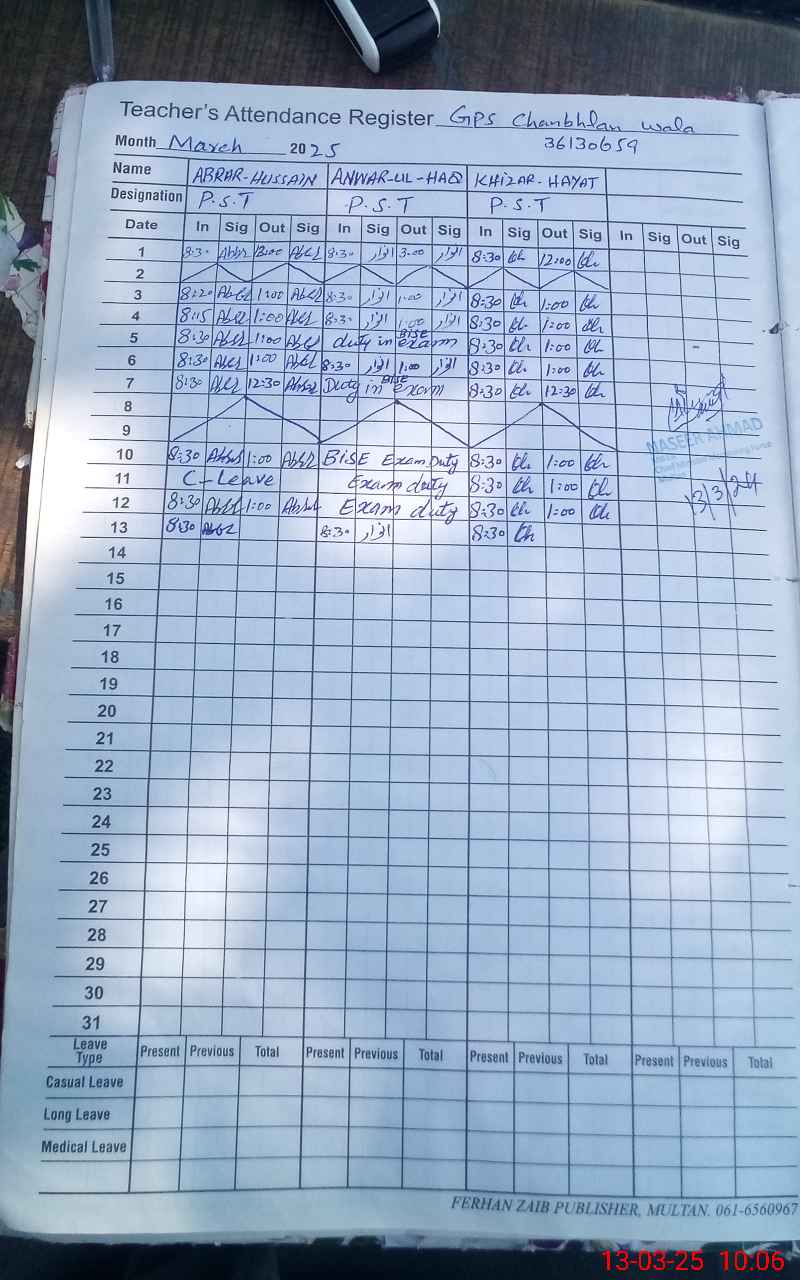 Teacher's Attendance Register GPS Chanbhlan wala
Month March 2025 36130659
Name ABRAR-HUSSAIN ANWAR-UL-HAQ KHIZAR-HAYAT
Designation P.S.T P.S.T P.S.T
Date In Sig Out Sig In Sig Out Sig In Sig Out Sig In Sig Out Sig
1 8:30 12:00 8:30 3:00 8:30 12:00
2
3 8:20 1:00 8:30 1:00 8:30 1:00
4 8:15 1:00 8:30 1:00 8:30 1:00
5 8:30 1:00 duty in BISE exam 8:30 1:00
6 8:30 1:00 8:30 1:00 8:30 1:00
7 8:30 12:30 Duty in BISE exam 8:30 12:30
8
9
MASEER AHMAD
10 8:30 1:00 BISE Exam Duty 8:30 1:00
11 C-Leave Exam duty 8:30 1:00
12 8:30 1:00 Exam duty 8:30 1:00
13/3/24
13 8:30 8:30 8:30
14
15
16
17
18
19
20
21
22
23
24
25
26
27
28
29
30
31
Leave Type Present Previous Total Present Previous Total Present Previous Total Present Previous Total
Casual Leave
Long Leave
Medical Leave
FERHAN ZAIB PUBLISHER, MULTAN. 061-6560967
13-03-25 10:06